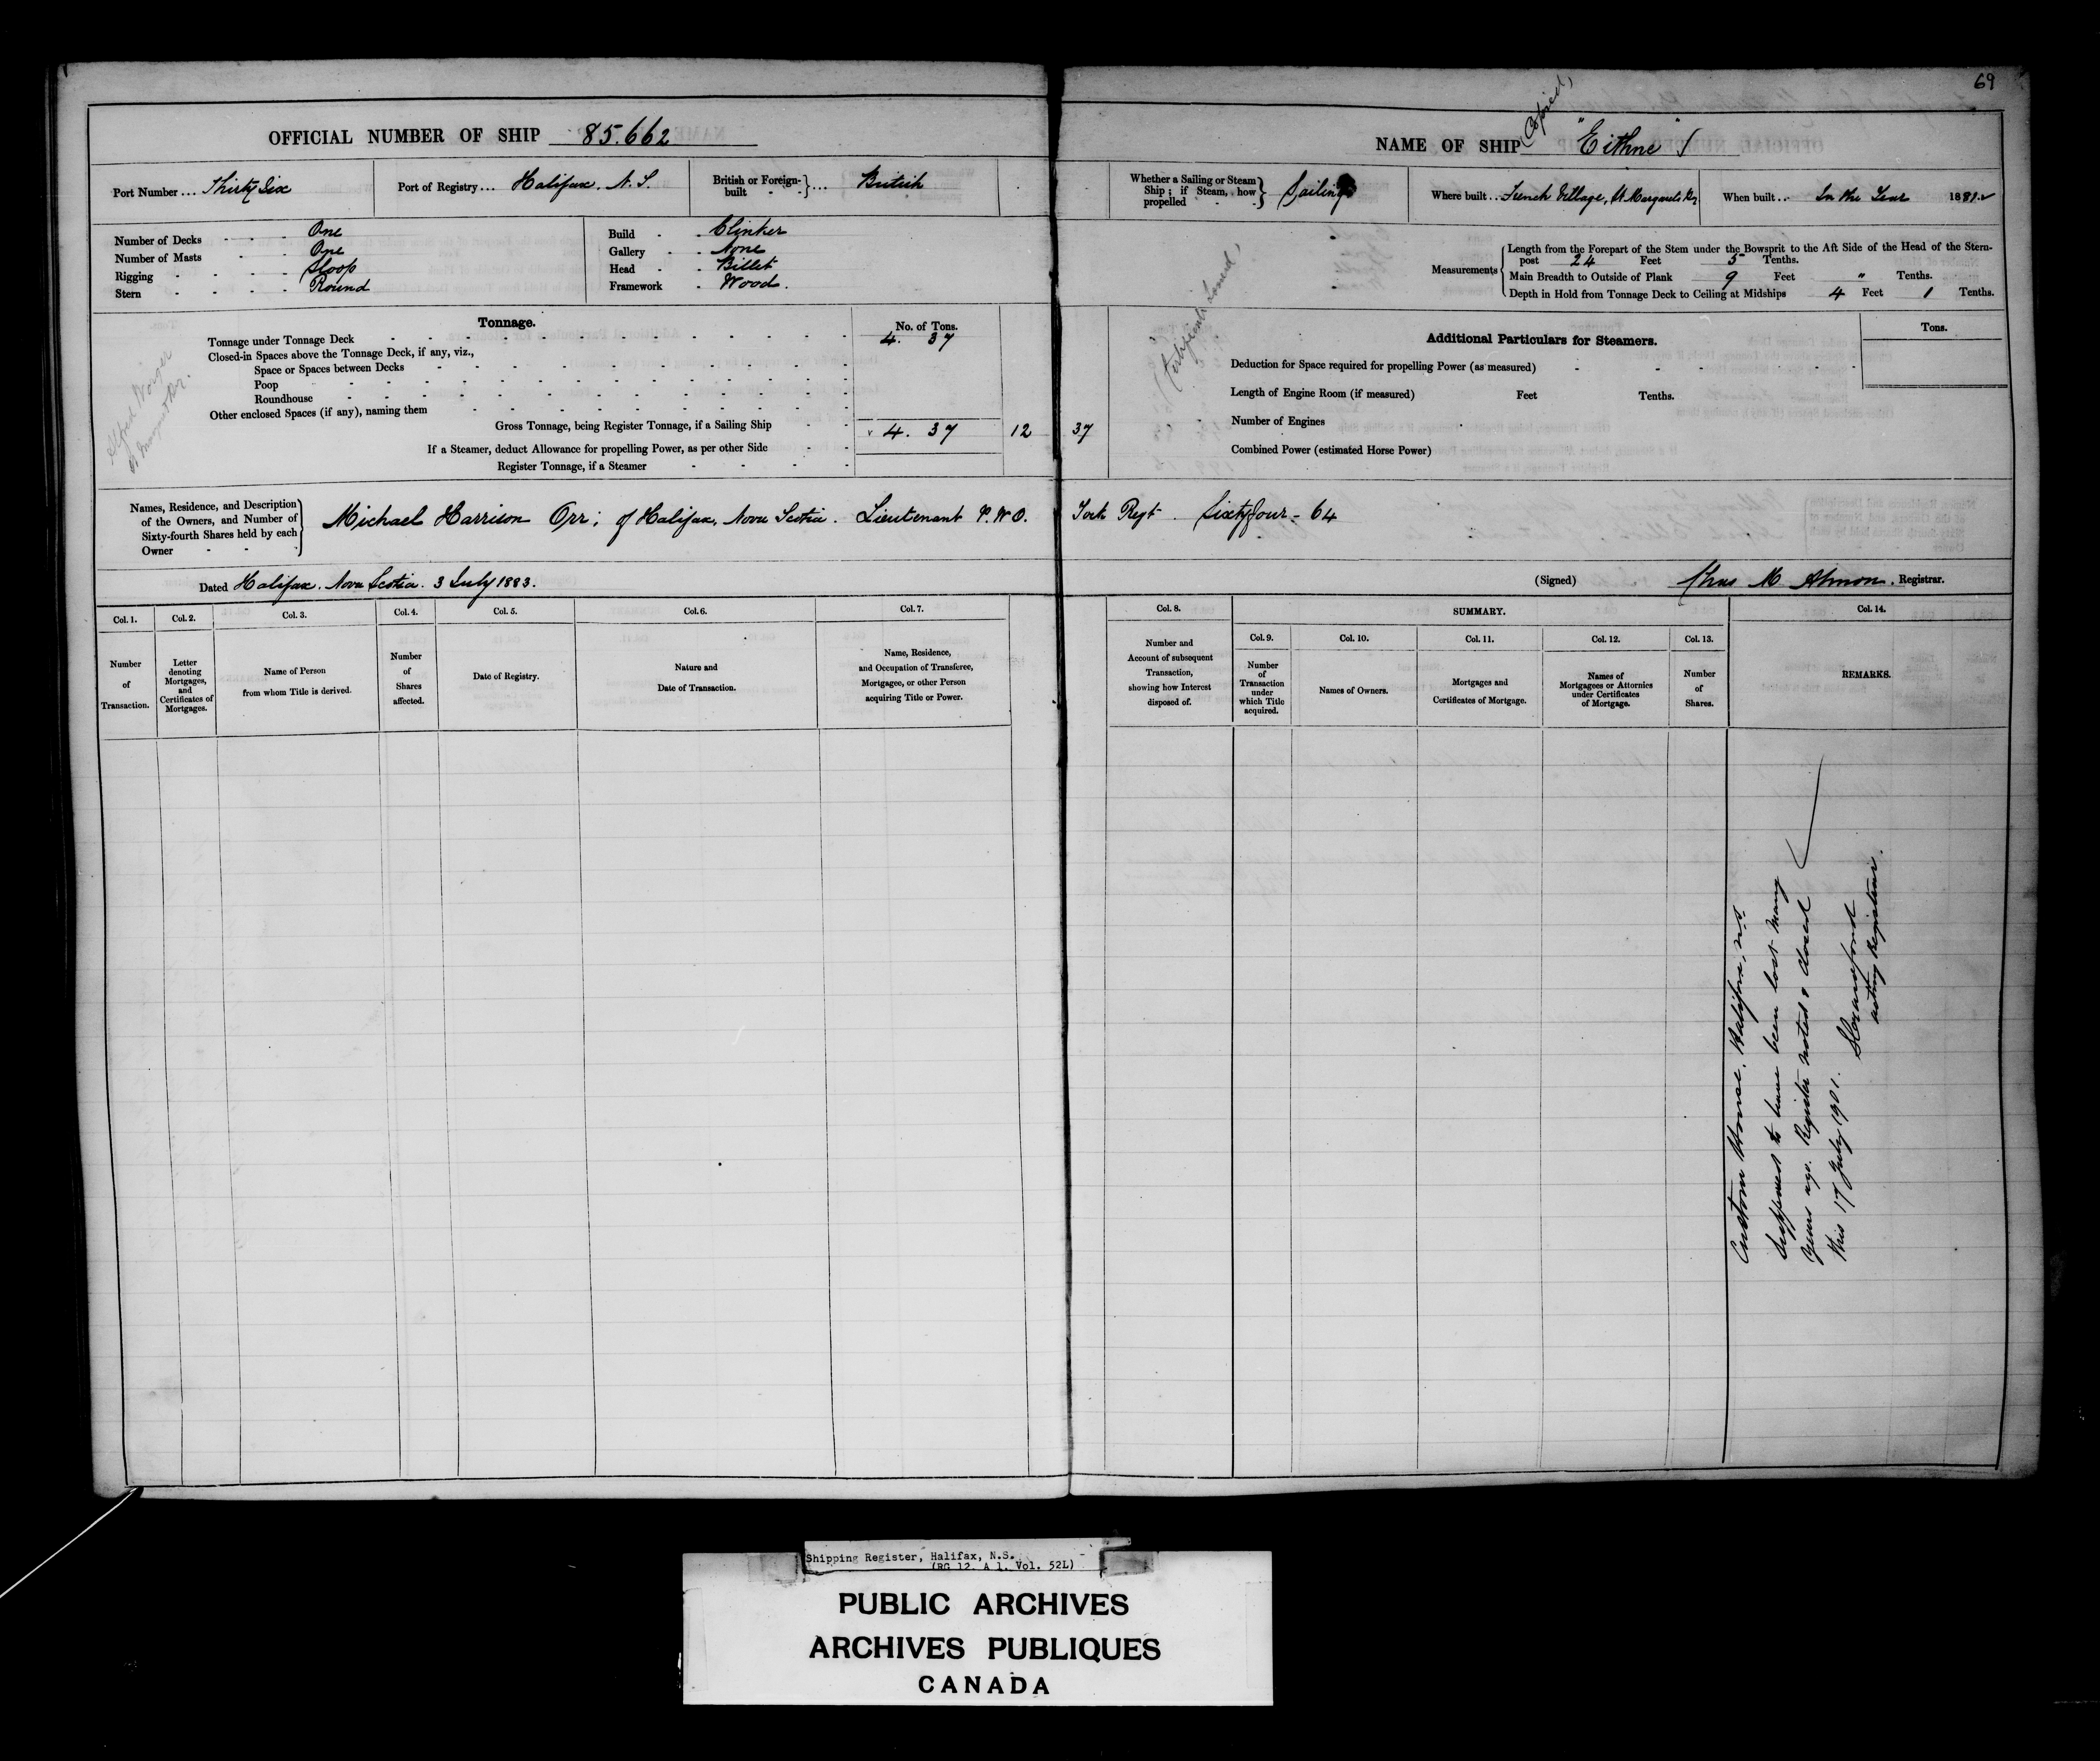 69
OFFICIAL NUMBER OF SHIP 85.662
NAME OF SHIP "Eithne"
(Copied)
Port Number ... Thirty Six
Port of Registry ... Halifax. N.S.
British or Foreign-built } ... British
Whether a Sailing or Steam Ship; if Steam, how propelled } Sailing
Where built .. French Village, St Margarets By
When built .. In the Year 1881
Number of Decks One
Number of Masts One
Rigging Sloop
Stern Round
Build Clinker
Gallery None
Head Billet
Framework Wood.
Measurements
Length from the Forepart of the Stem under the Bowsprit to the Aft Side of the Head of the Stern-
post 24 Feet 5 Tenths.
Main Breadth to Outside of Plank 9 Feet " Tenths.
Depth in Hold from Tonnage Deck to Ceiling at Midships 4 Feet 1 Tenths.
Tonnage.
No. of Tons.
Tonnage under Tonnage Deck 4. 37
Closed-in Spaces above the Tonnage Deck, if any, viz.,
Space or Spaces between Decks
Poop
Roundhouse
Other enclosed Spaces (if any), naming them
Gross Tonnage, being Register Tonnage, if a Sailing Ship 4. 37 12 37
If a Steamer, deduct Allowance for propelling Power, as per other Side
Register Tonnage, if a Steamer
Alfred
St Margarets Br.
(Certificate Issued)
Additional Particulars for Steamers.
Tons.
Deduction for Space required for propelling Power (as measured)
Length of Engine Room (if measured) Feet Tenths.
Number of Engines
Combined Power (estimated Horse Power)
Names, Residence, and Description of the Owners, and Number of Sixty-fourth Shares held by each Owner
Michael Harrison Orr; of Halifax, Nova Scotia. Lieutenant P.W.O. York Regt. Sixty four - 64
Dated Halifax. Nova Scotia. 3 July 1883.
(Signed) Chas M Almon. Registrar.
Col. 1. Col. 2. Col. 3. Col. 4. Col. 5. Col. 6. Col. 7. Col. 8. SUMMARY. Col. 14.
Col. 9. Col. 10. Col. 11. Col. 12. Col. 13.
Number of Transaction.
Letter denoting Mortgages, and Certificates of Mortgages.
Name of Person from whom Title is derived.
Number of Shares affected.
Date of Registry.
Nature and Date of Transaction.
Name, Residence, and Occupation of Transferee, Mortgagee, or other Person acquiring Title or Power.
Number and Account of subsequent Transaction, showing how Interest disposed of.
Number of Transaction under which Title acquired.
Names of Owners.
Mortgages and Certificates of Mortgage.
Names of Mortgagees or Attornies under Certificates of Mortgage.
Number of Shares.
REMARKS.
Custom House. Halifax, N.S.
Supposed to have been lost many
years ago. Register noted & closed
this 17 July 1901.
acting Registrar.
Shipping Register, Halifax, N.S.
(RG 12. A 1. Vol. 52L)
PUBLIC ARCHIVES
ARCHIVES PUBLIQUES
CANADA